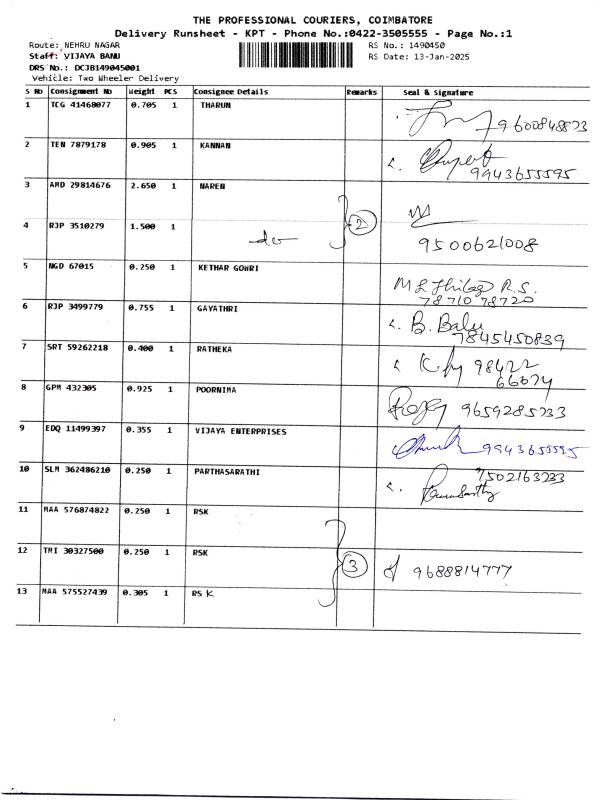 THE PROFESSIONAL COURIERS, COIMBATORE
Delivery Runsheet - KPT - Phone No.:0422-3505555 - Page No.:1
Route: NEHRU NAGAR RS No.: 1490450
Staff: VIJAYA BANU RS Date: 13-Jan-2025
DRS No.: DCJB149045001
Vehicle: Two Wheeler Delivery
S No Consignment No Weight PCS Consignee Details Remarks Seal & Signature
1 TCG 41468077 0.705 1 THARUN 9600848823
2 TEN 7879178 0.905 1 KANNAN 9943655595
3 AMD 29814676 2.650 1 NAREN
4 RJP 3510279 1.500 1 do 2 9500621008
5 NGD 67015 0.250 1 KETHAR GOWRI R.S. 7871078720
6 RJP 3499779 0.755 1 GAYATHRI B. Balu 7845450839
7 SRT 59262218 0.400 1 RATHEKA 98422
66674
8 GPM 432305 0.925 1 POORNIMA 9659285233
9 EDQ 11499397 0.355 1 VIJAYA ENTERPRISES 9943655595
10 SLM 362486210 0.250 1 PARTHASARATHI 7502163233
11 MAA 576874822 0.250 1 RSK
12 TMI 30327500 0.250 1 RSK 3 9688814777
13 MAA 575527439 0.305 1 RSK